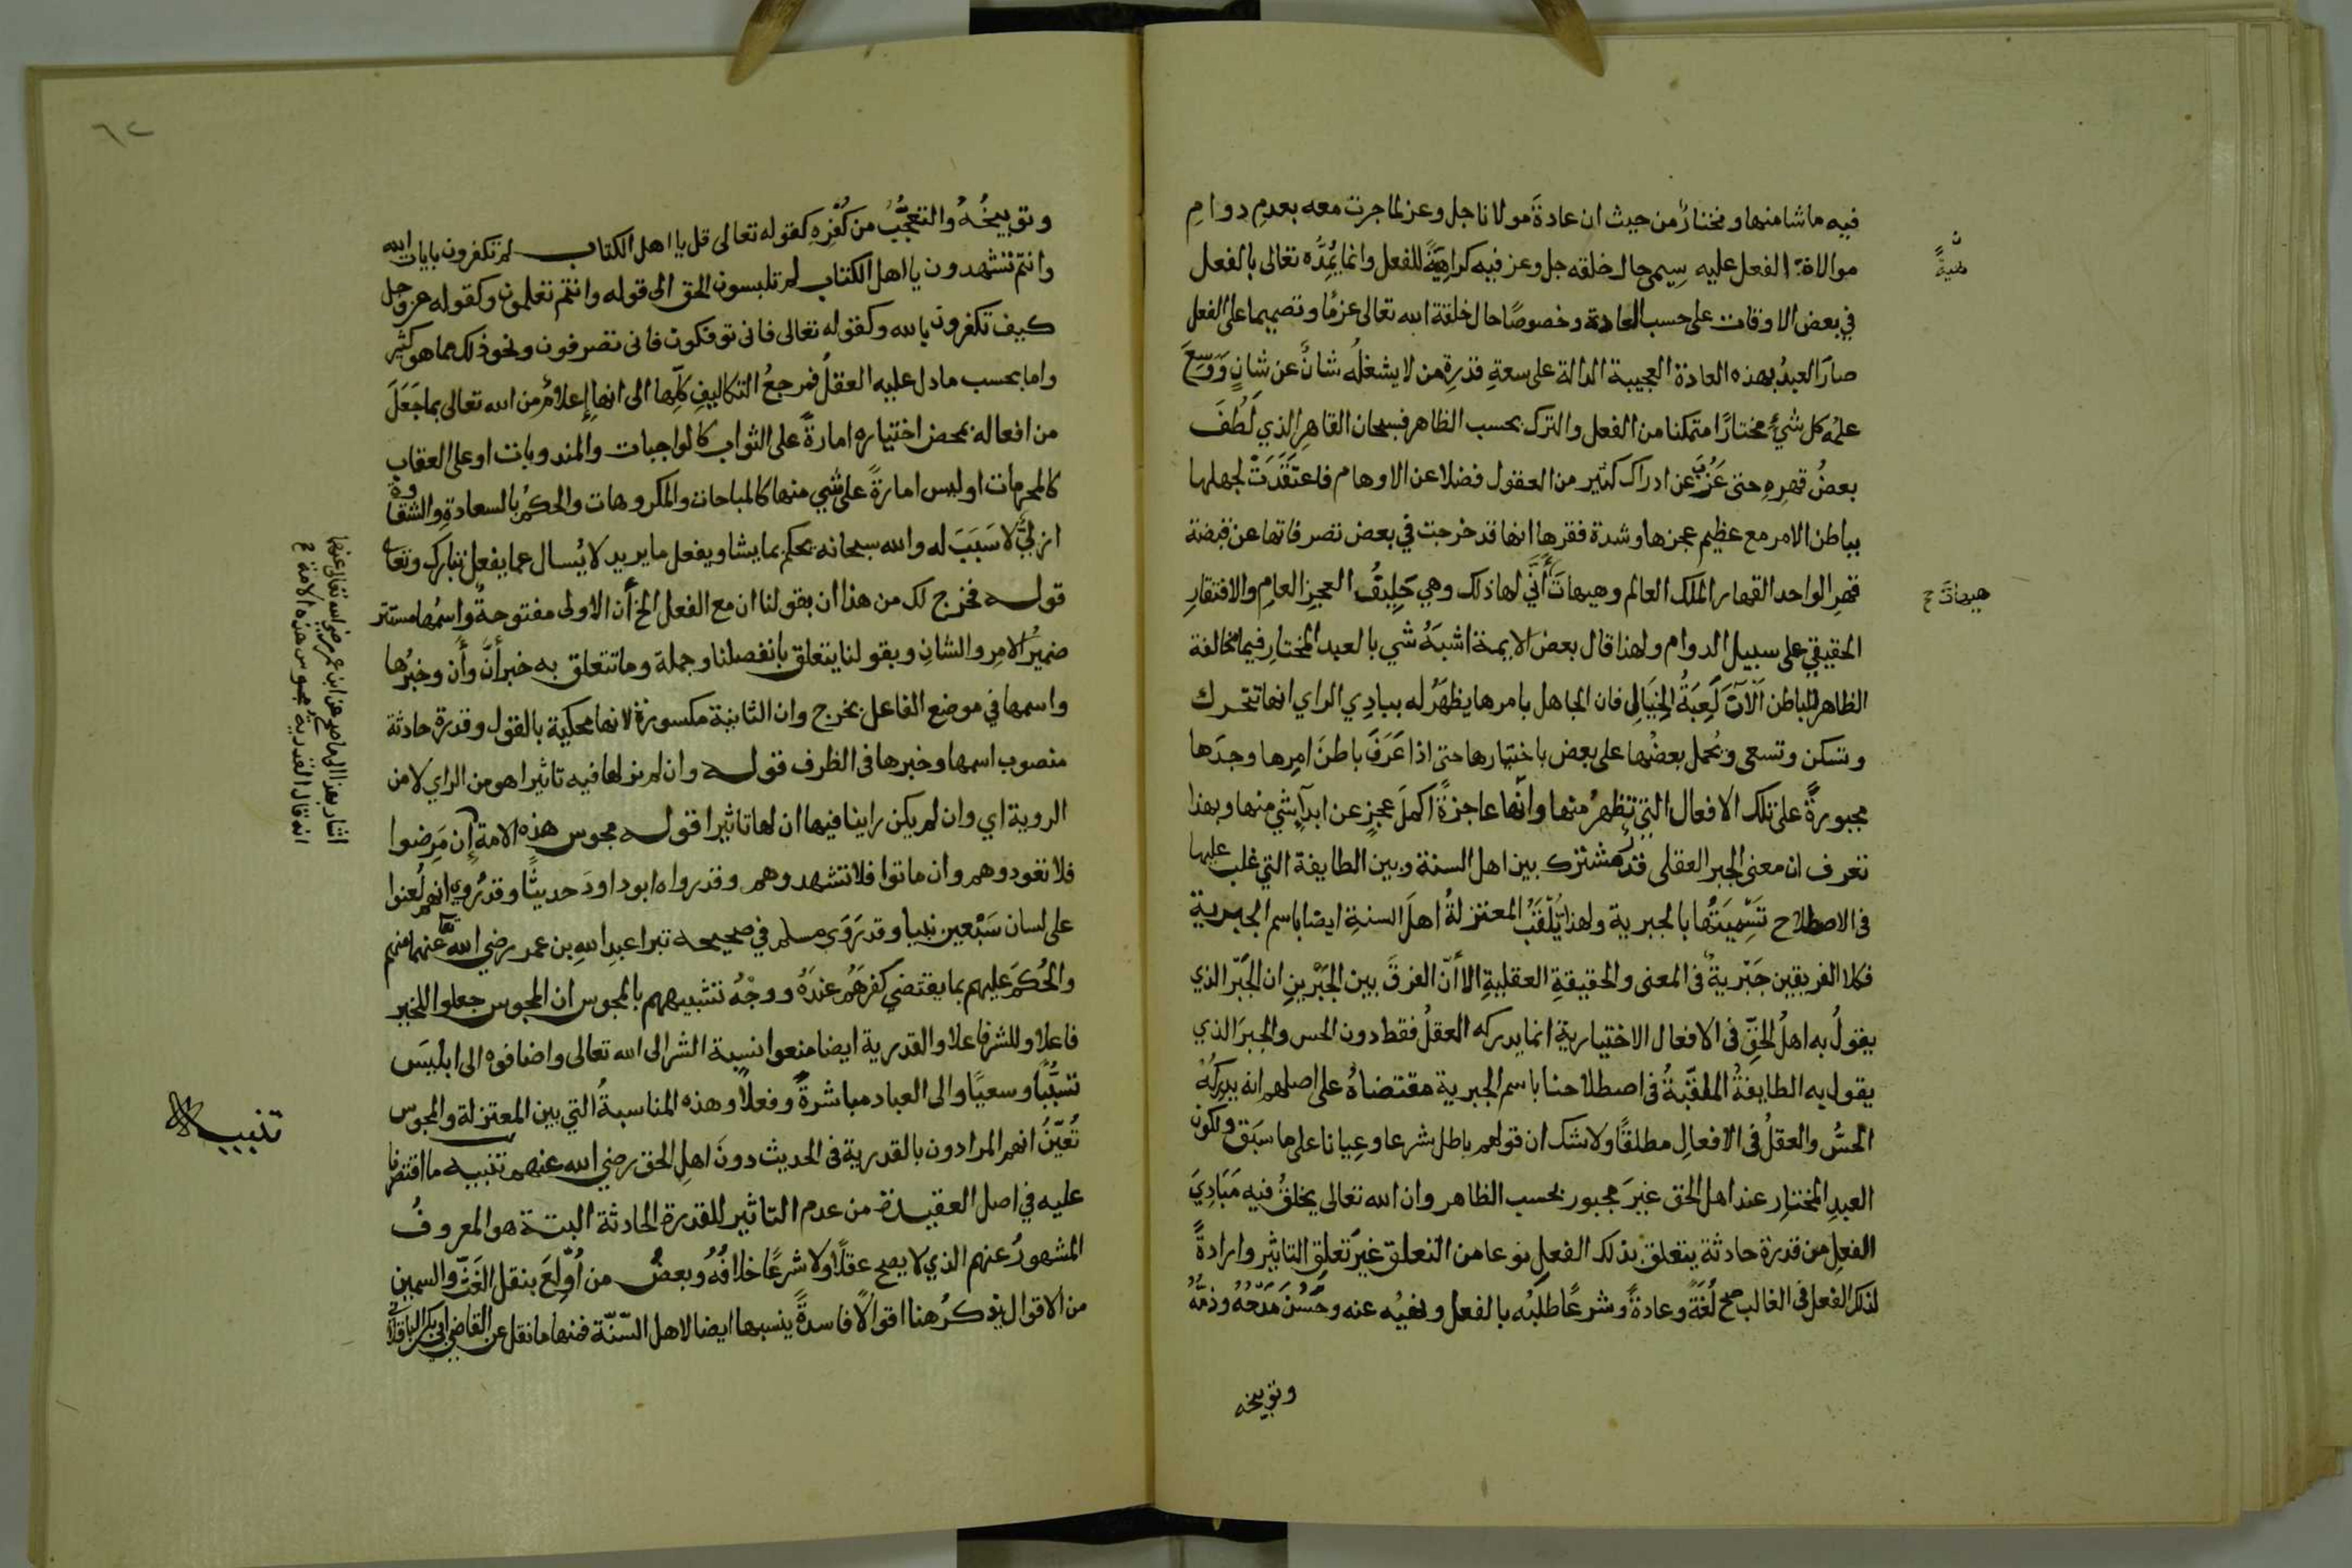 فيه ما شا منها ونختارُ من حيث ان عادةَ مولانا جل وعز لما جرت معه بعدمِ دوامِ
موالاة الفعل عليه سِيم حال خلقه جل وعز فيه كراهيَةً للفعل وانما يُمِدُّه تعالى بالفعل
في بعض الاوقات على حسب العادة وخصوصًا حال خلقة الله تعالى عزمًا وتصميما على الفعل
صارَ العبدُ بهذه العادة العجيبة الدالة على سعةِ قدرةِ من لا يشغلُه شانٌ عن شانٍ وَوَسِعَ
علمُه كل شيءٍ مختارًا متمكنا من الفعل والترك بحسب الظاهر فسبحان القاهرِ الذي لَطُفَ
بعضُ قهرِهِ حتى عَزُبَ عن ادراك كثير من العقول فضلا عن الاوهام فاعتَقَدَتْ لجهلها
بباطن الامر مع عظيم عجزها وشدة فقرها انها قد خرجت في بعض تصرفاتها عن قبضة
قهرِ الواحد القهار الملك العالم وهيهاتَ أَنَّى لها ذلك وهي حَلِيفُ العجزِ العامِ والافتقارِ
الحقيقيِ على سبيل الدوام ولهذا قال بعض الايمة اشبَهُ شي بالعبد المختارِ فيما مخالفة
الظاهر للباطن آلاتُ لَعِبَةُ الخَيَالِ فان الجاهل بامرها يظهَرُ له ببادِي الراي انها تتحرك
وتسكن وتسعى ويحمل بعضُها على بعض باختيارها حتى اذا عَرَفَ باطنَ امرِها وجدَها
مجبورةً على تلك الافعال التي تظهرُ منها وانها عاجزةٌ اكملَ عجزٍ عن ابداءِ شي منها وبهذا
تعرف ان معنى الجبر العقلى قدرٌ مشترك بين اهل السنة وبين الطايفة التي غلب عليها
فى الاصطلاح تَسْمِيَتُها بالجبرية ولهذا يُلَقِّبُ المعتزلةُ اهلَ السنةِ ايضا باسم الجبرية
فكلا الفريقين جَبْريةٌ فى المعنى والحقيقةِ العقليةِ الا أنّ الفرقَ بين الجَبْرينِ ان الجَبْرَ الذي
يقولُ به اهلُ الحقِّ فى الافعال الاختيارية انما يدركه العقلُ فقط دون الحس والجبرَ الذي
يقول به الطايفةُ الملقّبةُ فى اصطلاحنا باسم الجبرية مقتضاهُ على اصلهم انه يدركُهُ
الحسُّ والعقلُ فى الافعالِ مطلقًا ولا شك ان قولهم باطل شرعا وعِيانا على ما سبَق ولكون
العبدِ المختارِ عند اهل الحق غيرَ مجبور بحسب الظاهر وان الله تعالى يخلقُ فيه مَبَادِيَ
الفعلِ من قدرة حادثة يتعلق بذلك الفعلِ نوعا من التعلق غيرَ تعلقِ التاثيرِ وارادةً
لذلك الفعل فى الغالب صح لُغَةً وعادةً وشرعًا طلبُه بالفعل ونهيُه عنه وحُسْنُ مَدْحُهُ وذمُّهُ
وتوبيخه
هيهات ح
٦٢
وتوبيخُهُ والتعجُّبُ من كُفْرِهِ كقوله تعالى قل يا اهل الكتاب لم تكفرون بايات الله
وانتم تشهدون يا اهل الكتاب لم تلبسون الحق الى قوله وانتم تعلمون وكقوله عز وجل
كيف تكفرون بالله وكقوله تعالى فانى توفكون فانى تصرفون ونحو ذلك مما هو كثير
واما بحسب ما دل عليه العقلُ فمرجعُ التكاليفِ كلِّها الى انها إعلامٌ من الله تعالى بما جَعَلَ
من افعاله بمحض اختياره امارةً على الثواب كالواجبات والمندوبات او على العقاب
كالمحرمات او ليس امارةً على شي منها كالمباحات والمكروهات والحكمُ بالسعادةِ والشقاوة
ازليٌّ لا سَبَبَ له والله سبحانه يحكم بما يشا ويفعل ما يريد لا يُسال عما يفعل تبارك وتعالى
قوله فخرج لك من هذا ان بقولنا ان مع الفعل الخ أن الاولى مفتوحةٌ واسمُها مستتر
ضميرُ الامرِ والشانِ وبقولنا يتعلق بانفصلنا وجملة وما تتعلق به خبر أنَّ وأن وخبرُها
واسمها في موضع الفاعل بخرج وان الثانية مكسورة لانها محكية بالقول وقدرة حادثة
منصوب اسمها وخبرها فى الظرف قوله وان لم نر لها فيه تاثيرا هو من الراي لا من
الروية اي وان لم يكن راينا فيها ان لها تاثيرا قوله مجوس هذه الامة إن مَرِضوا
فلا تعودوهم وان ماتوا فلا تشهدوهم وقد رواه ابو داودَ حديثًا وقد رُوي انهم لُعنوا
على لسان سَبْعين نبيا وقد رَوَى مسلم في صحيحه تبرا عبدِ اللهِ بن عمر رضي الله تعالى عنهما منهم
والحُكْمَ عليهم بما يقتضي كفرَهُم عندَهُ ووجْهُ تشبيههم بالمجوس ان المجوس جعلوا للخير
فاعلا وللشر فاعلا والقدرية ايضا منعوا نسبة الشر الى الله تعالى واضافوه الى ابليسَ
تسبُّبًا وسعيًا والى العباد مباشرةً وفعلًا وهذه المناسبةُ التي بين المعتزلة والمجوس
تُعيّنُ انهم المرادون بالقدرية فى الحديث دونَ اهلِ الحق رضي الله عنهم تنبيه ما اقتصرنا
عليه في اصل العقيدة من عدم التاثير للقدرة الحادثة البتة هو المعروفُ
المشهورُ عنهم الذي لا يصح عقلًا ولا شرعًا خلافُهُ وبعضُ من أُولِعَ بنقل الغَثِّ والسمينِ
من الاقوال يذكرُ هنا اقوالًا فاسدةً ينسبها ايضا لاهل السّنّة فمنها ما نقل عن القاضي ابي بكر الباقلاني
اشار بهذا الى ما صح عن ابن عمر رضي الله تعالى عنهما
انه قال القدرية مجوس هذه الامة ح
تنبيه